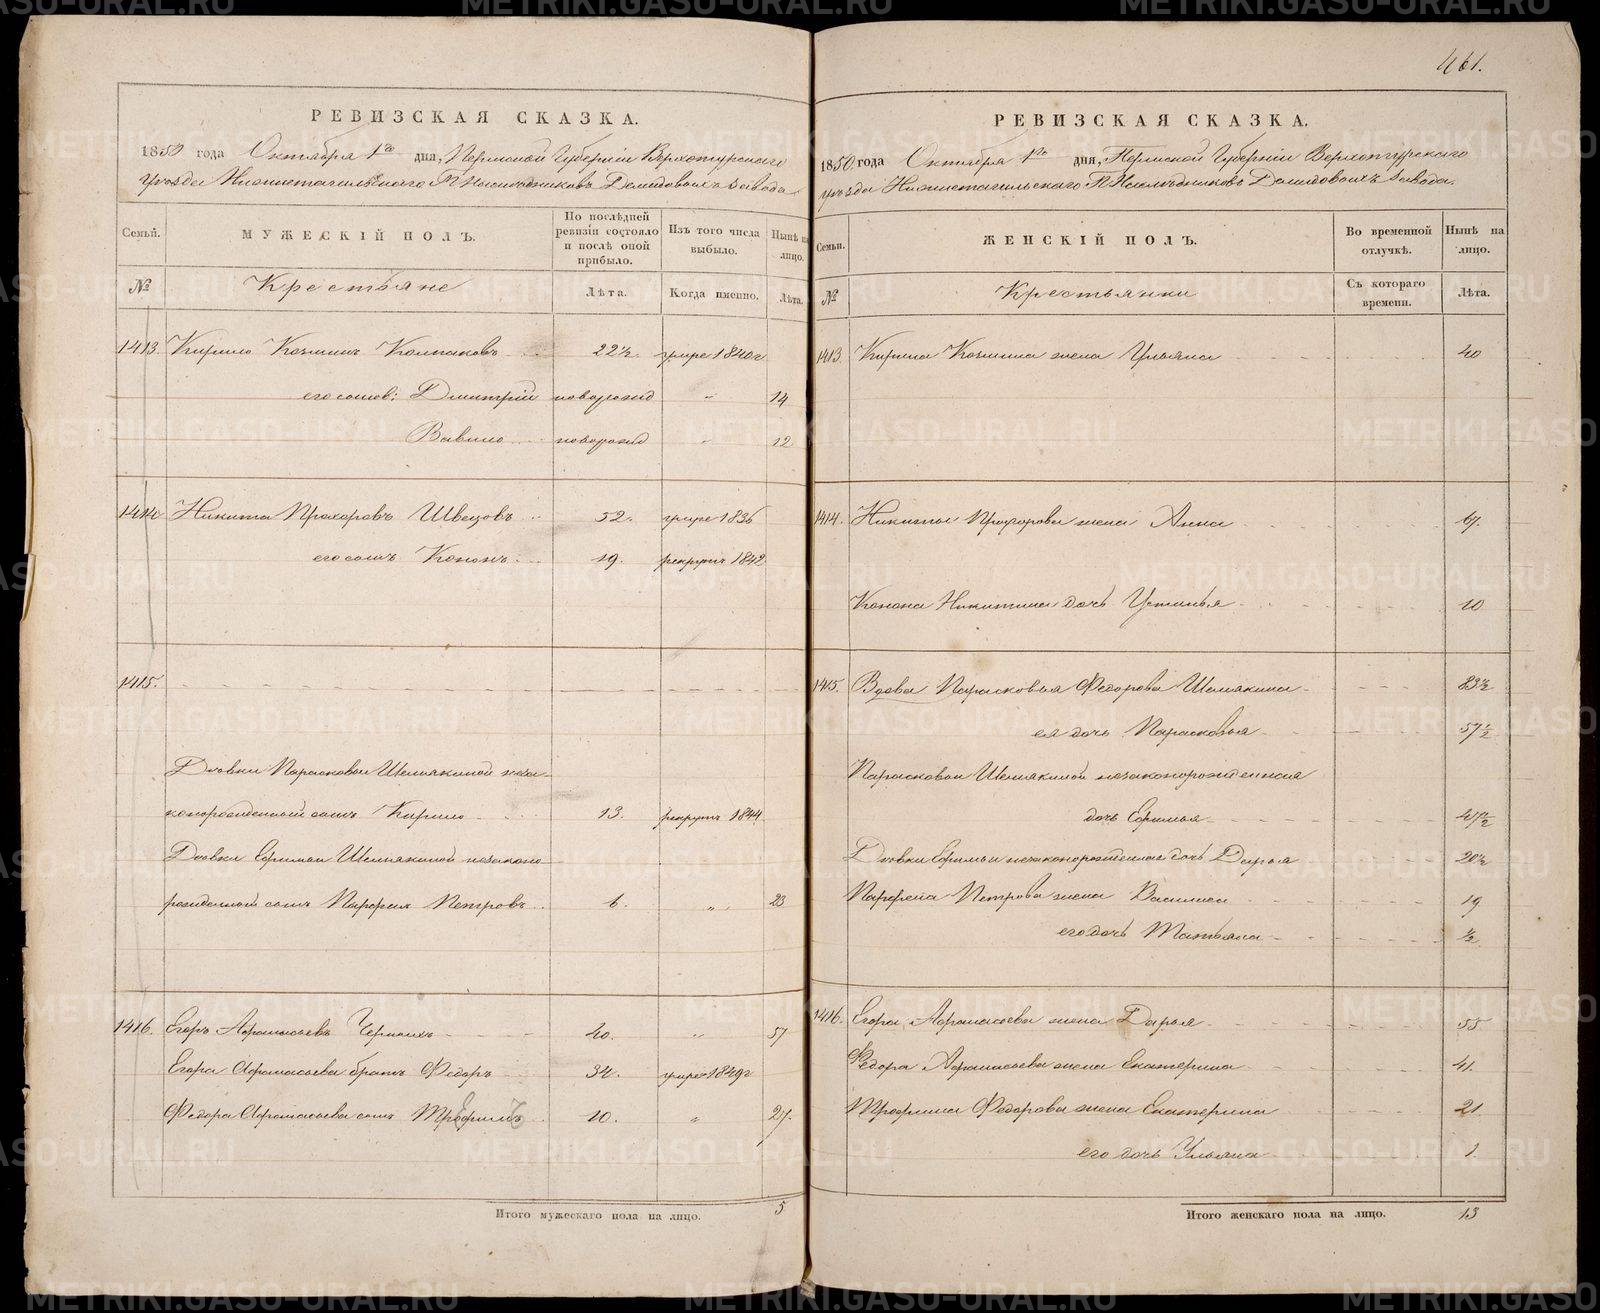 461.
РЕВИЗСКАЯ СКАЗКА.
1850 года Октября 1го дня, Пермской Губерніи Верхотурскаго
уѣзда Нижнетагильскаго Наслѣдниковъ Демидовыхъ завода
Семьи. МУЖЕСКІЙ ПОЛЪ. По послѣдней ревизіи состояло и послѣ оной прибыло. Изъ того числа выбыло. Нынѣ на лицо.
№ Крестьяне Лѣта. Когда именно. Лѣта.
1413. Кирило Козминъ Колпаковъ 22½. умре 1840г
его сынов: Дмитрій новорожд „ 14
Вавило новорожд „ 12
1414 Никита Прохоровъ Швецовъ 52. умре 1836
его сынъ Кононъ 19. рекрутъ 1842
1415.
Дѣвки Парасковьи Шемякиной неза-
коннорожденный сынъ Кирило 13. рекрутъ 1844
Дѣвки Ефимьи Шемякиной незаконо
рожденный сынъ Парфенъ Петровъ 6. „ 23
1416. Егоръ Афонасьевъ Черныхъ 40. „ 57
Егора Афонасьева братъ Федоръ 34. умре 1849г
Федора Афонасьева сынъ Трофимъ 10. „ 27.
Итого мужескаго пола на лицо. 5
РЕВИЗСКАЯ СКАЗКА.
1850 года Октября 1го дня, Пермской Губерніи Верхотурскаго
уѣзда Нижнетагильскаго Наслѣдниковъ Демидовыхъ завода.
Семьи. ЖЕНСКІЙ ПОЛЪ. Во временной отлучкѣ. Нынѣ на лицо.
№ Крестьянки Съ котораго времени. Лѣта.
1413. Кирила Козмина жена Ульяна 40
1414. Никиты Прохорова жена Анна 67.
Конона Никитина дочь Устинья 10
1415. Вдова Парасковья Федорова Шемякина 83½
ея дочь Парасковья 57½
Парасковьи Шемякиной незаконорожденная
дочь Ефимья 41½
Дѣвки Ефимьи незаконорожденная дочь Дарья 20½
Парфена Петрова жена Василиса 19
его дочь Татьяна ½
1416. Егора Афонасьева жена Дарья 55
Федора Афонасьева жена Екатерина 41.
Трофима Федорова жена Екатерина 21
его дочь Ульяна 1.
Итого женскаго пола на лицо. 13
METRIKI.GASO-URAL.RU